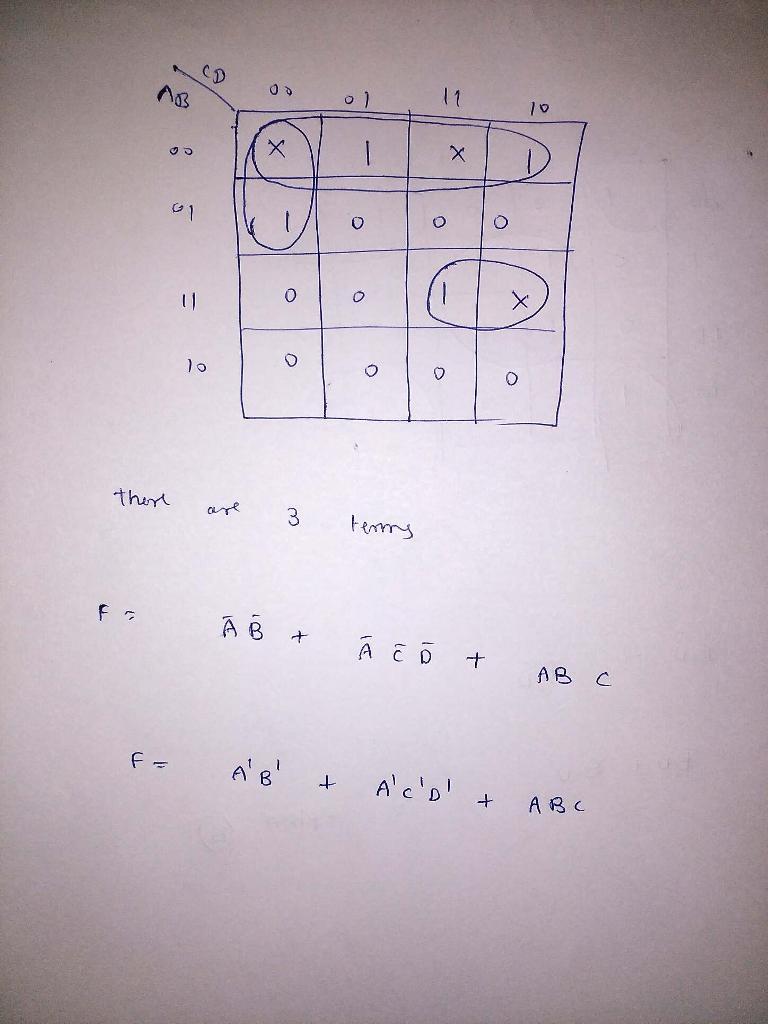 CD
AB 00 01 11 10
00 X 1 X 1
01 1 0 0 0
11 0 0 1 X
10 0 0 0 0
there are 3 terms
F = Ā B̄ + Ā C̄ D̄ + AB C
F = A'B' + A'C'D' + ABC